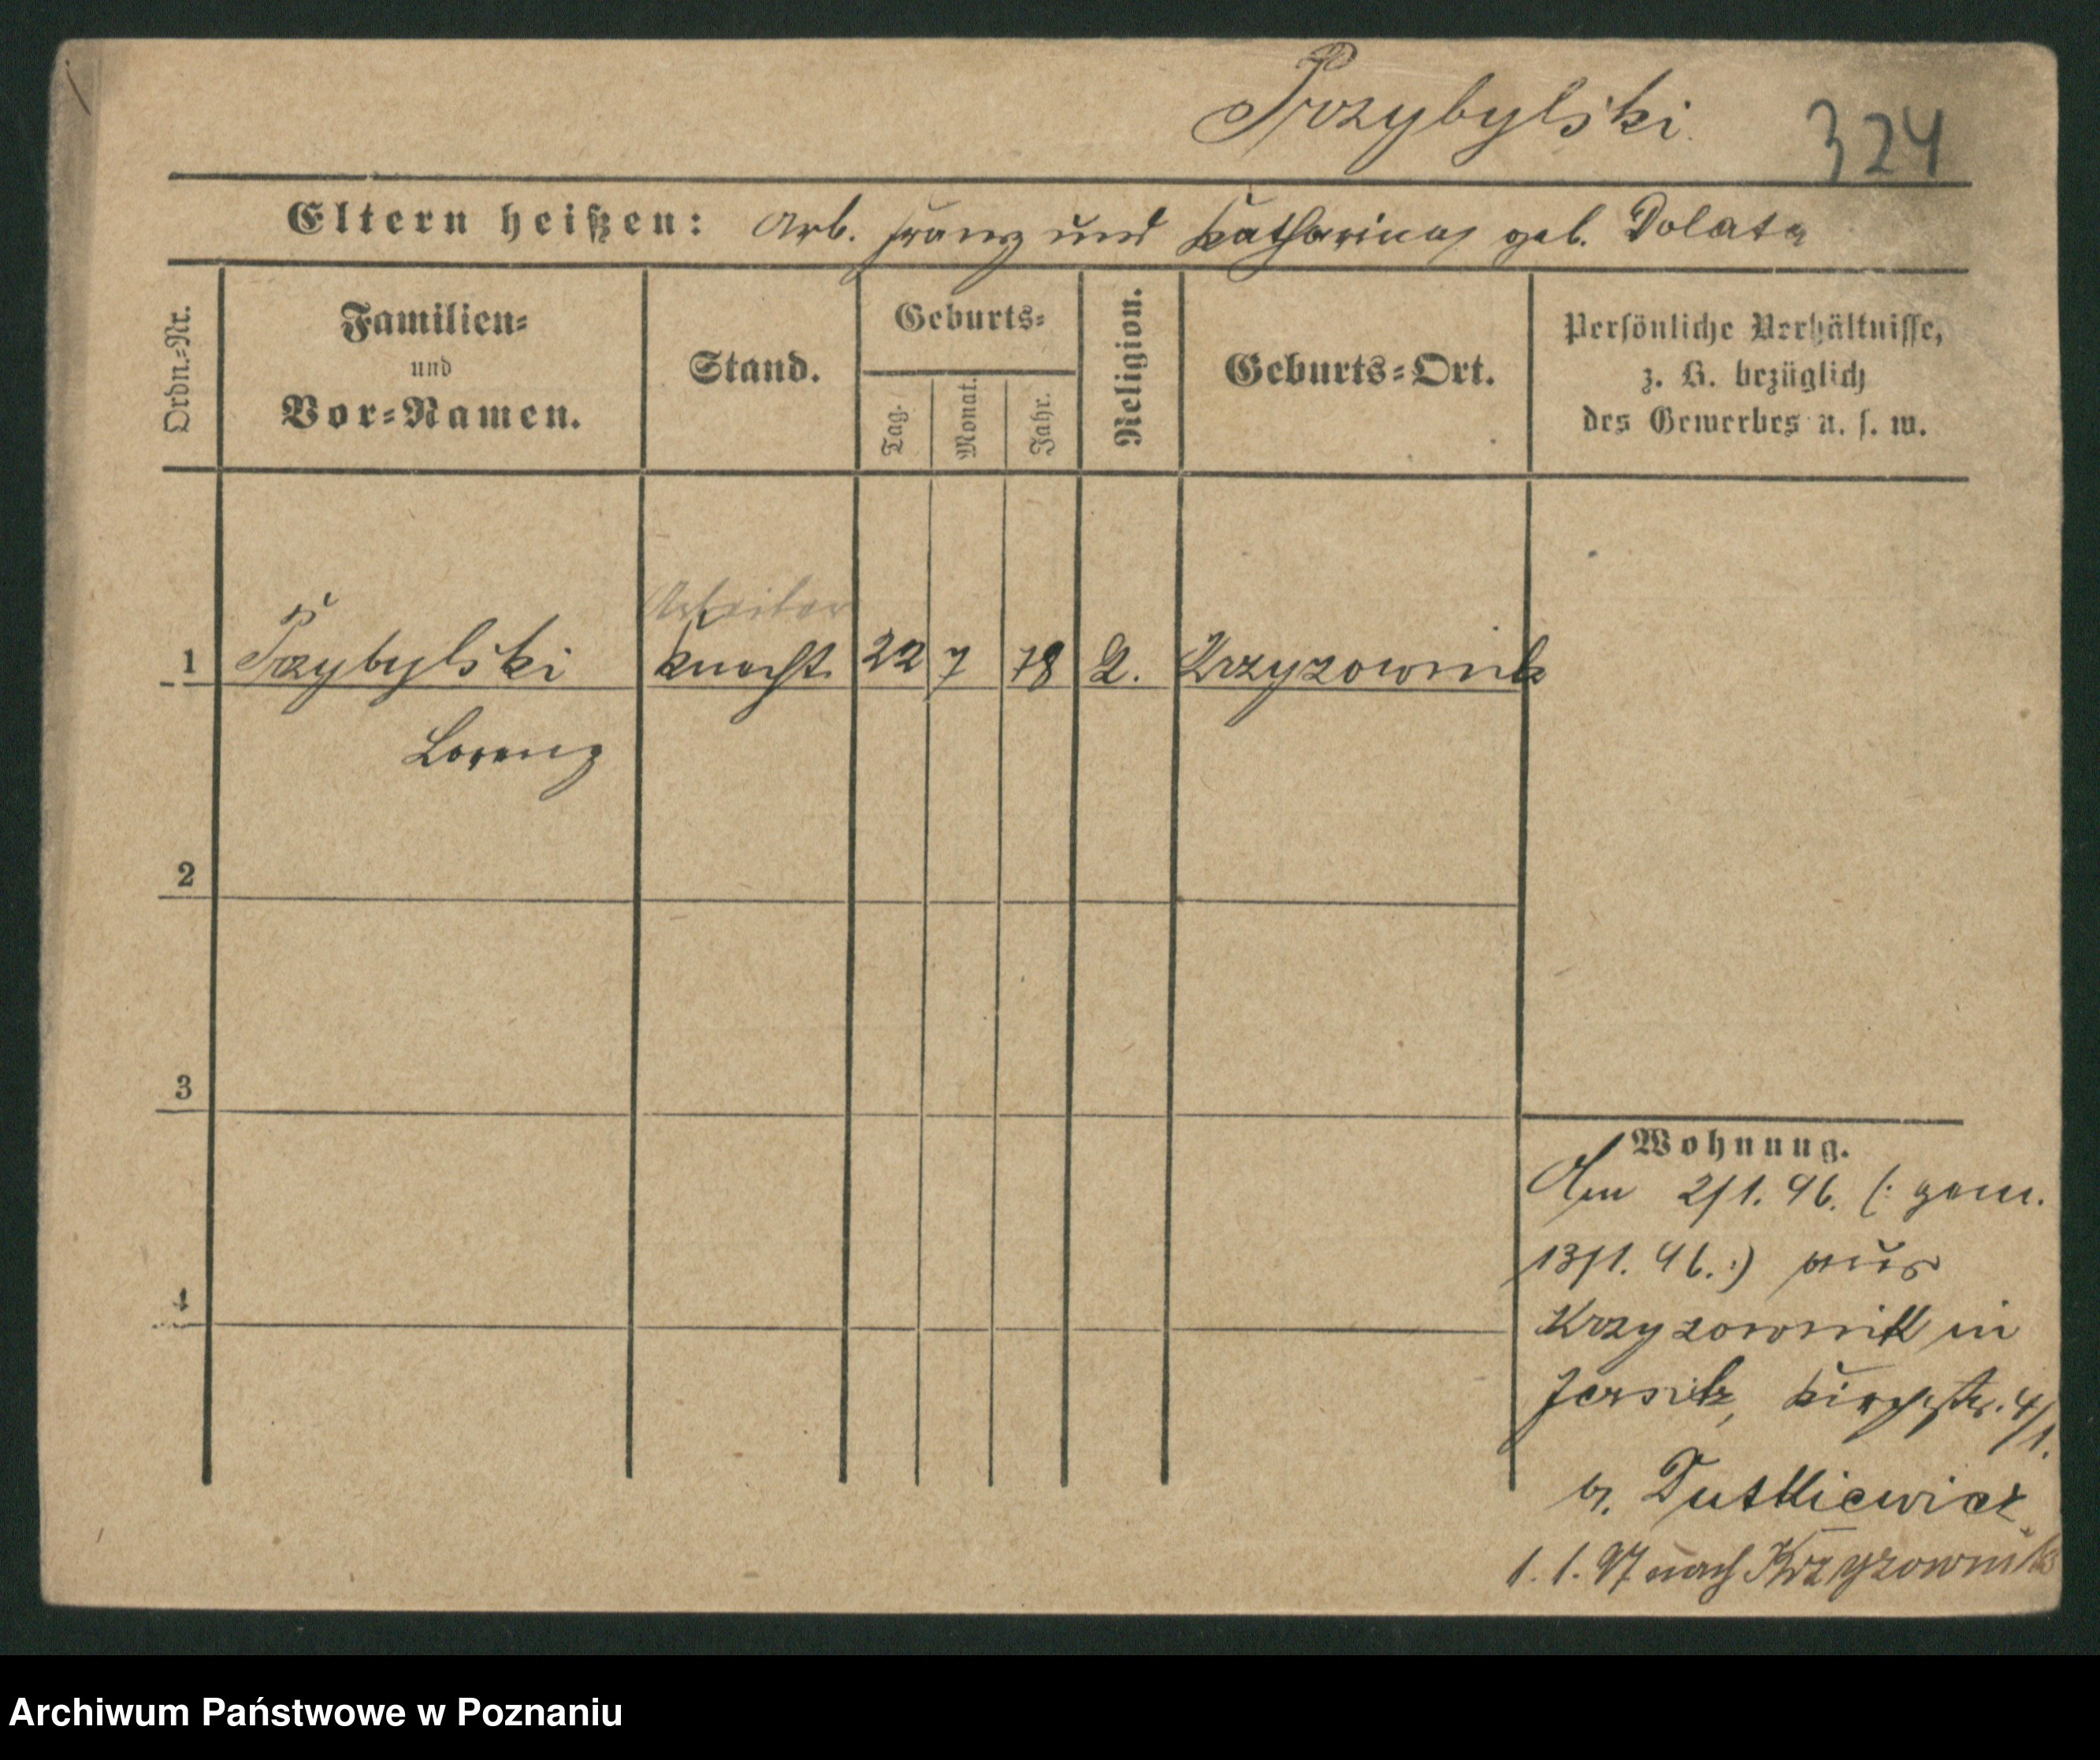 Przybylski
324
Eltern heißen: Arb. Franz und Katharina geb. Dolata
Ordn.=Nr.
Familien=
und
Vor=Namen.
Stand.
Geburts=
Tag.
Monat.
Jahr.
Religion.
Geburts=Ort.
Persönliche Verhältnisse,
z. B. bezüglich
des Gewerbes u. s. w.
Arbeiter
1 Przybylski Knecht 22 7 78 Krzyzownik
Lorenz
2
3
4
Wohnung.
Am 2/1. 96. (: gem.
13/1. 96. :) aus
Krzyzownik in
Jersitz, Kirchstr. 4/1.
b. Dutkiewicz
1. 1. 97 nach Krzyzownik
Archiwum Państwowe w Poznaniu